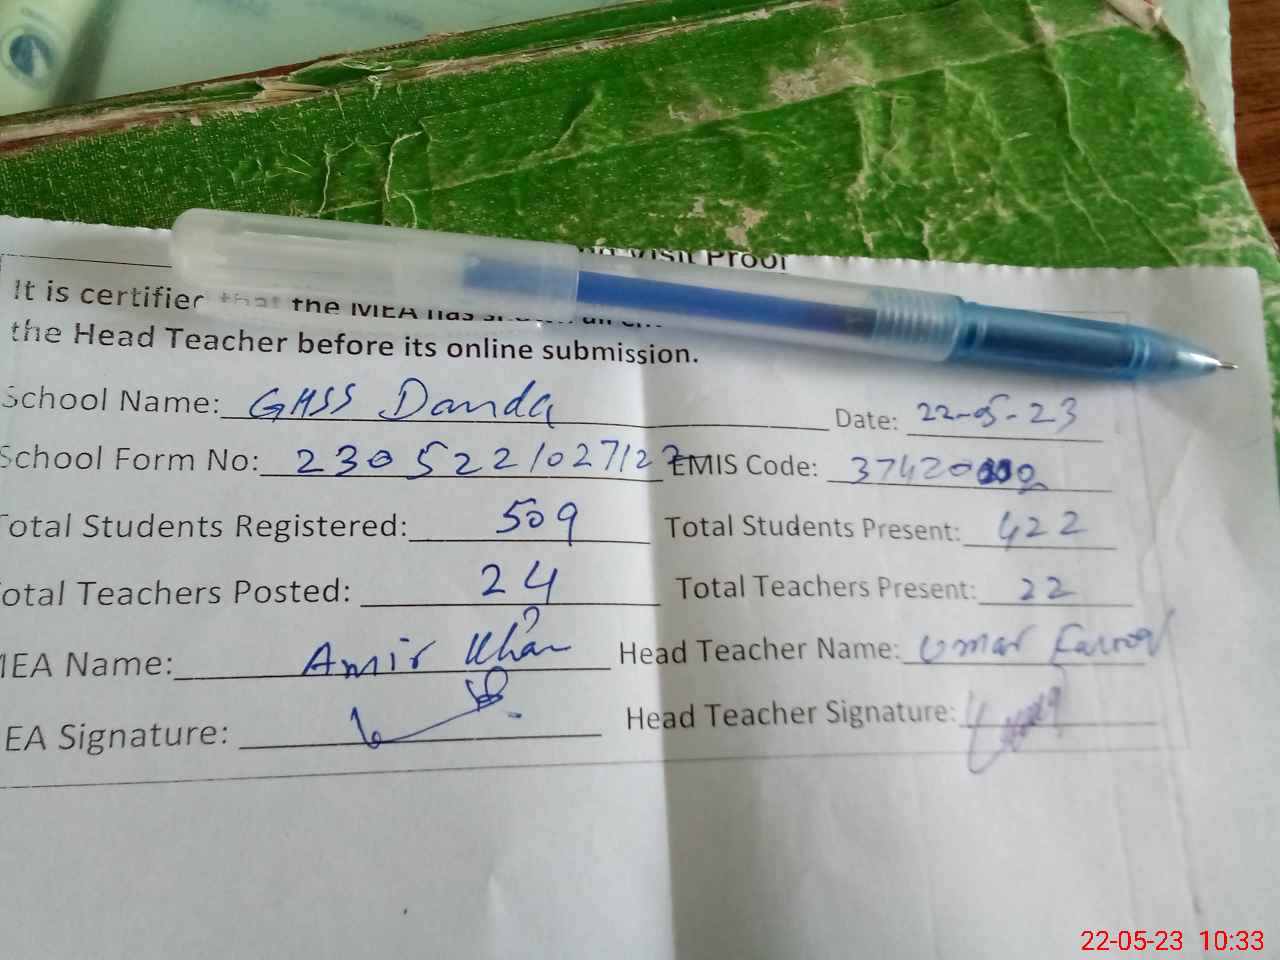 Visit Proof
It is certified that the MEA has
the Head Teacher before its online submission.
School Name: GHSS Danda Date: 22-05-23
School Form No: 230522102712 EMIS Code: 37420
Total Students Registered: 509 Total Students Present: 422
Total Teachers Posted: 24 Total Teachers Present: 22
MEA Name: Amir Khan Head Teacher Name: Umar Farooq
EA Signature: Head Teacher Signature:
22-05-23 10:33